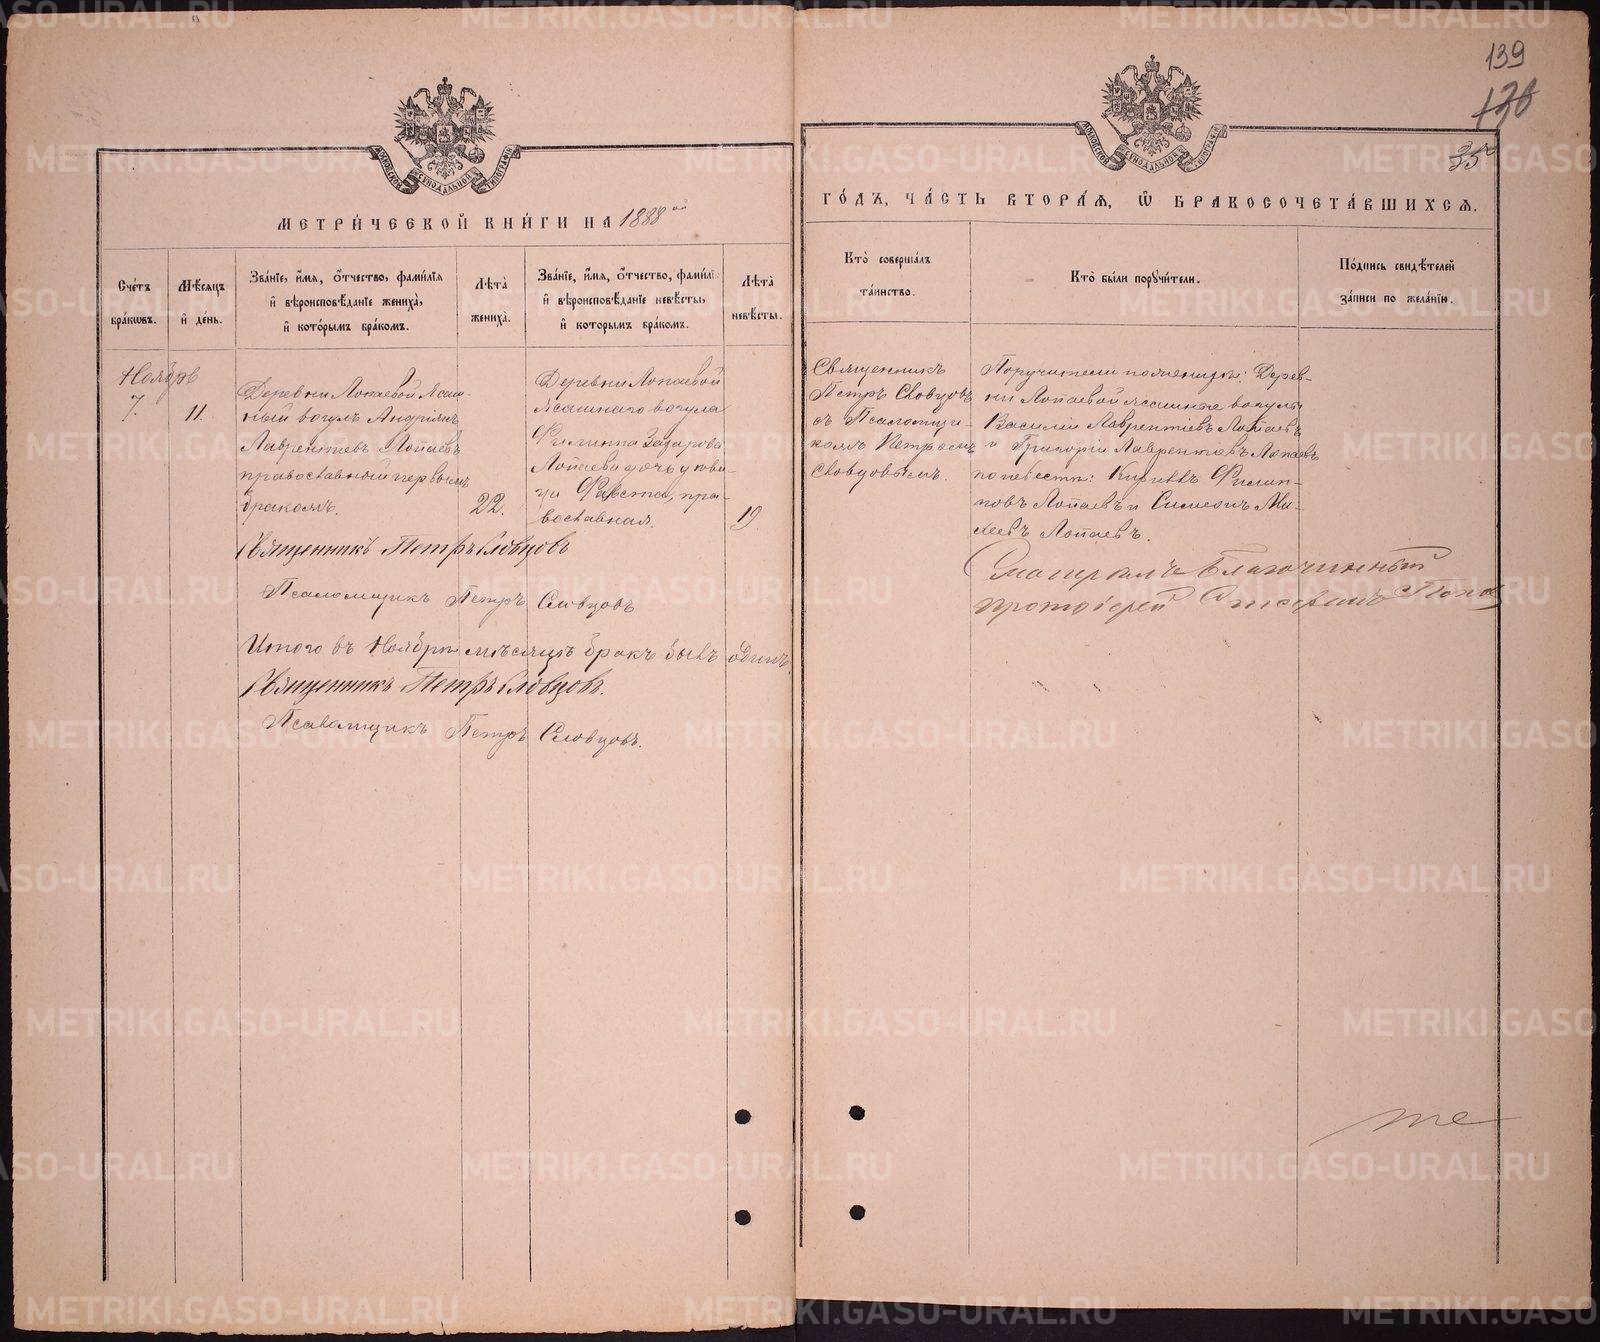 139
130
35
МОСКОВСКОЙ СѴНОДАЛЬНОЙ ТИПОГРАФІИ
МОСКОВСКОЙ СѴНОДАЛЬНОЙ ТИПОГРАФІИ
МЕТРИ́ЧЕСКОЙ КНИ́ГИ НА 1888 ой
ГО́ДЪ, ЧА́СТЬ ВТОРА́Я, Ѡ҆ БРАКОСОЧЕТА́ВШИХСЯ.
Сче́тъ бра́кѡвъ.
Мѣ́сяцъ и҆ де́нь.
Зва́нїе, и҆́мя, ѻ҆́тчество, фами́лїя и҆ вѣроисповѣ́данїе жениха̀, и҆ кото́рымъ бра́комъ.
Лѣ́та̀ жениха̀.
Зва́нїе, и҆́мя, ѻ҆́тчество, фами́лїя и҆ вѣроисповѣ́данїе невѣ́сты, и҆ кото́рымъ бра́комъ.
Лѣ́та̀ невѣ́сты.
Кто̀ соверша́лъ та́инство.
Кто̀ бы́ли порꙋчи́тели.
По́дпись свидѣ́телей за́писи по жела́нїю.
Ноябрь
7.
11.
Деревни Лопаевой Ясаш-
ный вогулъ Андріянъ
Лаврентіевъ Лопаевъ
православный первымъ
бракомъ.
22.
Деревни Лопаевой
Ясашнаго вогула
Филиппа Захарова
Лопаева дочь дѣви-
ца Фив
православная.
19
Священникъ
Петръ Словцовъ
съ Псаломщи-
комъ Петромъ
Словцовымъ.
Поручители по женихѣ: Дерев-
ни Лопаевой Ясашные вогулы
Василій Лаврентіевъ Лопаевъ
и Григорій Лаврентіевъ Лопаевъ
по невѣстѣ: Филип-
повъ Лопаевъ и Симеонъ Ми-
хеевъ Лопаевъ.
Священникъ Петръ Словцовъ
Псаломщикъ Петръ Словцовъ
Итого въ Ноябрѣ мѣсяцѣ бракъ былъ одинъ
Священникъ Петръ Словцовъ.
Псаломщикъ Петръ Словцовъ.
Сматривалъ Благочинный
протоіерей Стефанъ Попов
METRIKI.GASO-URAL.RU